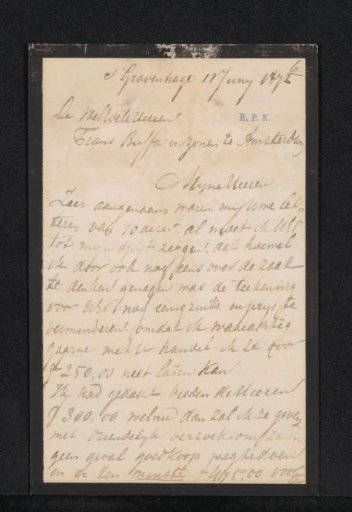 s'Gravenhage 11 Juny 1872
6
De WelEd Heeren
R. P. K.
Frans Buffa en Zonen te Amsterdam
Myne Heeren
Zeer aangenaam waren my Uwe let-
teren van al moet ik UEd
tot myn spyt zeggen, dat hoewel
ik door ook nog eens over de zaak
te denken genegen was de teekening
voor UEd nog eenigzints in prys te
verminderen, omdat ik waarachtig
gaarne met U handel ik ze voor
ƒ 250,00 niet laten kan
Ik had gedacht beeden de Heeren
ƒ 300,00 welnu dan zal ik ze geven
met vriendelyk verzoek om ze in
geen geval goedkoop weg te doen
en de Een minstens voor